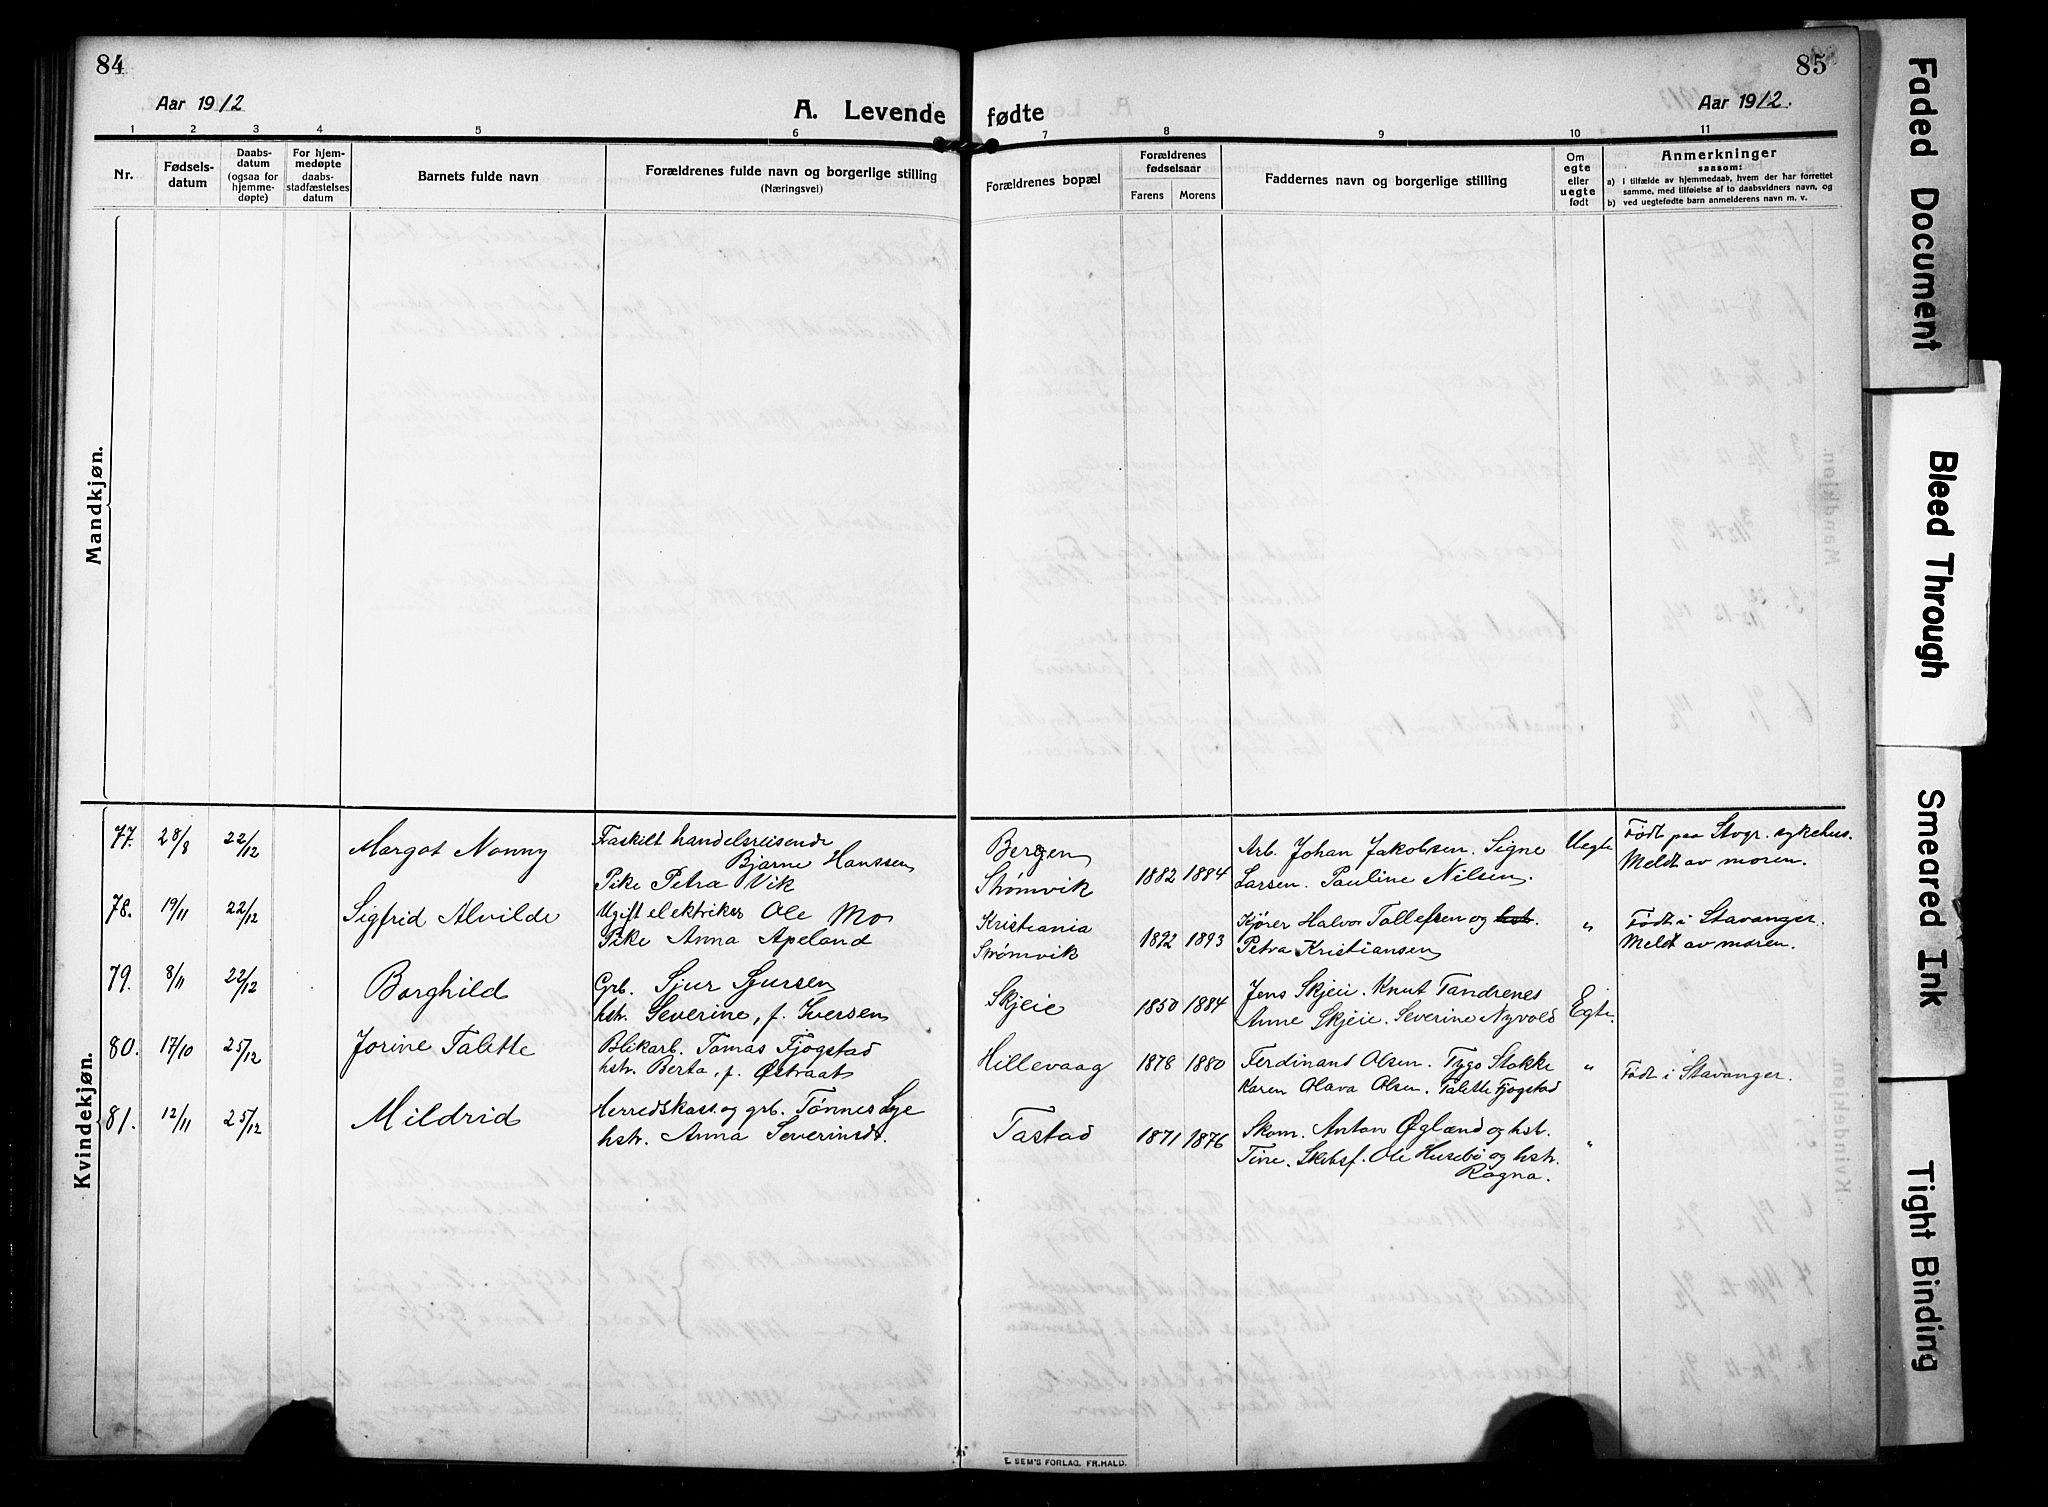 84
Aar 1912
A. Levende
fødte
85
Aar 1912.
1 2 3 4 5 6 7 8 9 10 11
Nr.
Fødsels-
datum
Daabs-
datum
(ogsaa for
hjemme-
døpte)
For hjem-
medøpte
daabs-
stadfæstelses
datum
Barnets fulde navn
Forældrenes fulde navn og borgerlige stilling
(Næringsvei)
Forældrenes bopæl
Forældrenes
fødselsaar
Farens
Morens
Faddernes navn og borgerlige stilling
Om
egte
eller
uegte
født
Anmerkninger
saasom:
a) I tilfælde av hjemmedaab, hvem der har forrettet
samme, med tilføielse af to daabsvidners navn, og
b) ved uegtefødte barn anmelderens navn m. v.
Mandkjøn.
Kvindekjøn.
77. 28/8 22/12 Margot Nonny
Fraskilt handelsreisende
Bjarne Hanssen
Pike Petra Vik
Bergen
Strømvik
1882 1884
Arb. Johan Jakobsen. Signe
Larsen. Pauline Nilsen.
Uegte
Født paa Stvgr. sykehus.
Meldt av moren.
78. 19/11 22/12 Sigfrid Alvilde
Ugift elektriker Ole Mo
Pike Anna Apeland
Kristiania
Strømvik
1892 1893
Kjører Halvor Tallefsen og hst.
Petra Kristiansen
"
Født i Stavanger.
Meldt av moren.
79. 8/11 22/12 Borghild
Grb. Sjur Sjursen
hstr. Severine, f. Iversen
Skjeie
1850 1884
Jens Skjeie. Knut Tandrenes
Anne Skjeie. Severine Nyvold
Egte.
80. 17/10 25/12 Jorine Talette
Blikarb. Tomas Fjogstad
hstr. Berta, f. Østraat
Hillevaag
1878 1880
Ferdinand Olsen. Tygo Stokke
Karen Olava Olsen. Talette Fjogstad
"
Født i Stavanger.
81. 12/11 25/12 Mildrid
Herredskass. og grb. Tønnes Lye
hstr. Anna Severinsdt.
Tastad
1871 1876
Skom. Anton Øglænd og hst.
Tine. Skibsf. Ole Husebø og hstr.
Ragna.
"
E. SEM'S FORLAG, FR.HALD.
Faded Document
Bleed Through
Smeared Ink
Tight Binding